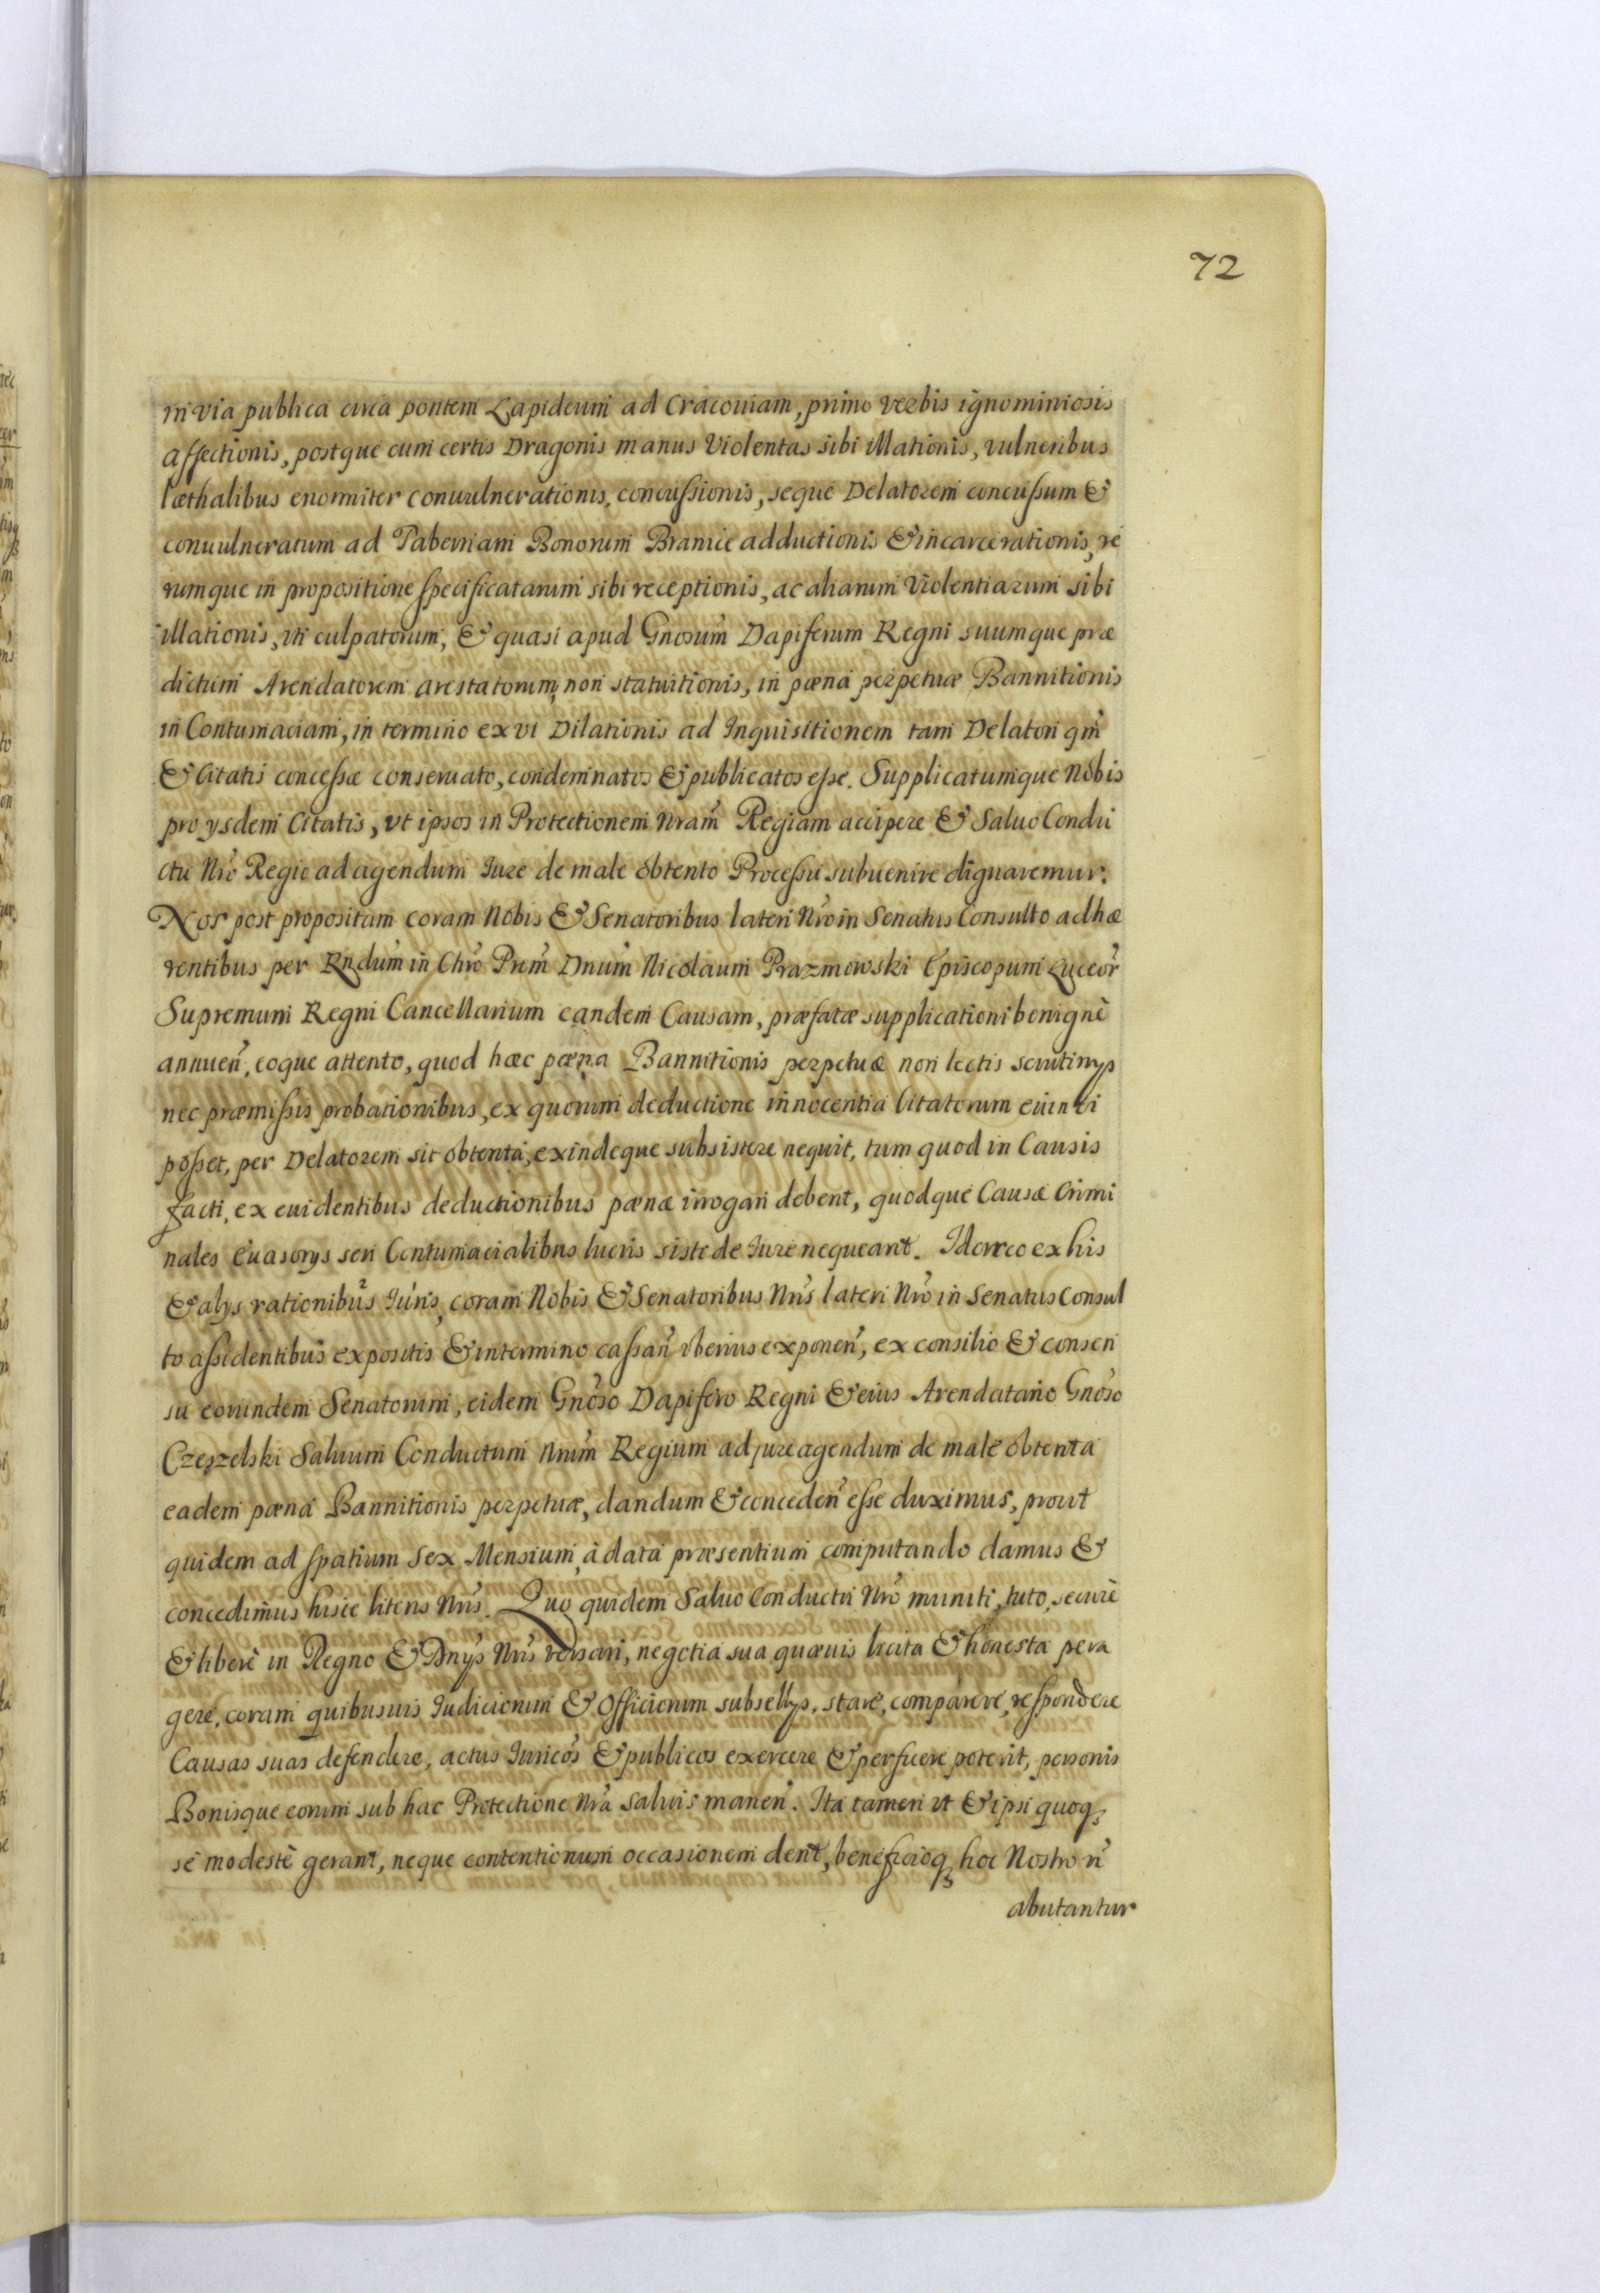 72
in via publica circa pontem Lapideum ad Cracouiam, primo verbis ignominiosis
affectionis, postque cum certis Dragonis manus Violentas sibi illationis, vulneribus
læthalibus enormiter conuulnerationis, concussionis, seque Delatorem concussum &
conuulneratum ad Tabernam Bonorum Branice adductionis & incarcerationis, re
rumque in propositione specificatarum sibi receptionis, ac aliarum Violentiarum sibi
illationis, uti culpatorum, & quasi apud Gnosum Dapiferum Regni suumque præ
dictum Arendatorem arestatorum, non statuitionis, in pœna perpetuæ Bannitionis
in Contumaciam, in termino ex vi Dilationis ad Inquisitionem tam Delatori qm
& Citatis concessæ conseruato, condemnatos & publicatos esse. Supplicatumque Nobis
pro ysdem Citatis, vt ipsos in Protectionem Nram Regiam accipere & Saluo Condu
ctu Nro Regio ad agendum Iure de male obtento Processu subuenire dignaremur.
Nos post propositam coram Nobis & Senatoribus lateri Nro in Senatus Consulto adhæ
rentibus per Rndum in Chro Prem Dnum Nicolaum Prazmowski Episcopum Luceor
Supremum Regni Cancellarium eandem Causam, præfatæ supplicationi benignè
annuen, eoque attento, quod hæc pœna Bannitionis perpetuæ non lectis scrutinys
nec præmissis probationibus, ex quorum deductione innocentia Citatorum euinci
posset, per Delatorem sit obtenta, exindeque subsistere nequit, tum quod in Causis
facti, ex euidentibus deductionibus pœnæ irrogari debent, quodque Causæ Crimi
nales euasorys seu Contumacialibus lucris siste de Iure nequeant. Idcirco ex his
& alys rationibus Iuris, coram Nobis & Senatoribus Nris lateri Nro in Senatus Consul
to assidentibus expositis & in termino cassan vberius exponen, ex consilio & consen
su eorundem Senatorum, eidem Gnoso Dapifero Regni & eius Arendatario Gnoso
Czeszelski Saluum Conductum Nrum Regium ad jure agendum de male obtenta
eadem pœna Bannitionis perpetuæ, dandum & conceden esse duximus, prout
quidem ad spatium Sex Mensium, à data præsentium computando damus &
concedimus hisce literis Nris. Quo quidem Saluo Conductu Nro muniti, tuto, securè
& liberè in Regno & Dnys Nris versari, negotia sua quæuis licita & honesta pera
gere, coram quibusuis Iudiciorum & Officiorum subsellys, stare, comparere, respondere
Causas suas defendere, actus Iuricos & publicos exercere & perfuere poterit, personis
Bonisque eorum sub hac Protectione Nra saluis manen. Ita tamen ut & ipsi quoq
se modestè gerant, neque contentionum occasionem dent, beneficioq hoc Nostro n
abutantur